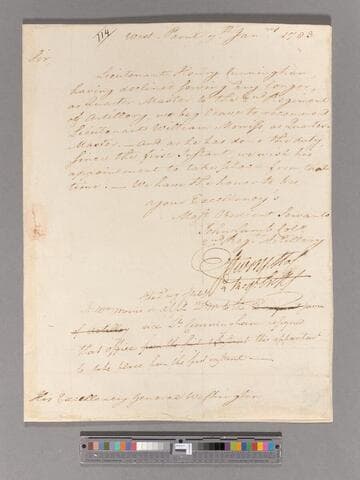 714
West Point 7th Jany 1783
Sir
Lieutenant Henry Cunningham
having declined serving any longer,
as Quarter Master to the 2nd Regiment
of Artillery we beg leave to recommend
Lieutenant William Morris as Quarter
Master — and as he has done the duty
since the first Instant we wish his
appointment to take place from that
time. — We have the honor to be
your Excellency's
Most Obedient Servants
John Lamb Colo
2nd Reg. Artillery
Lt Wm Morris is appd to the
vice Lt Cunningham resigned
that office from the first instant the appointmt
to take place from the first instant —
His Excellency General Washington